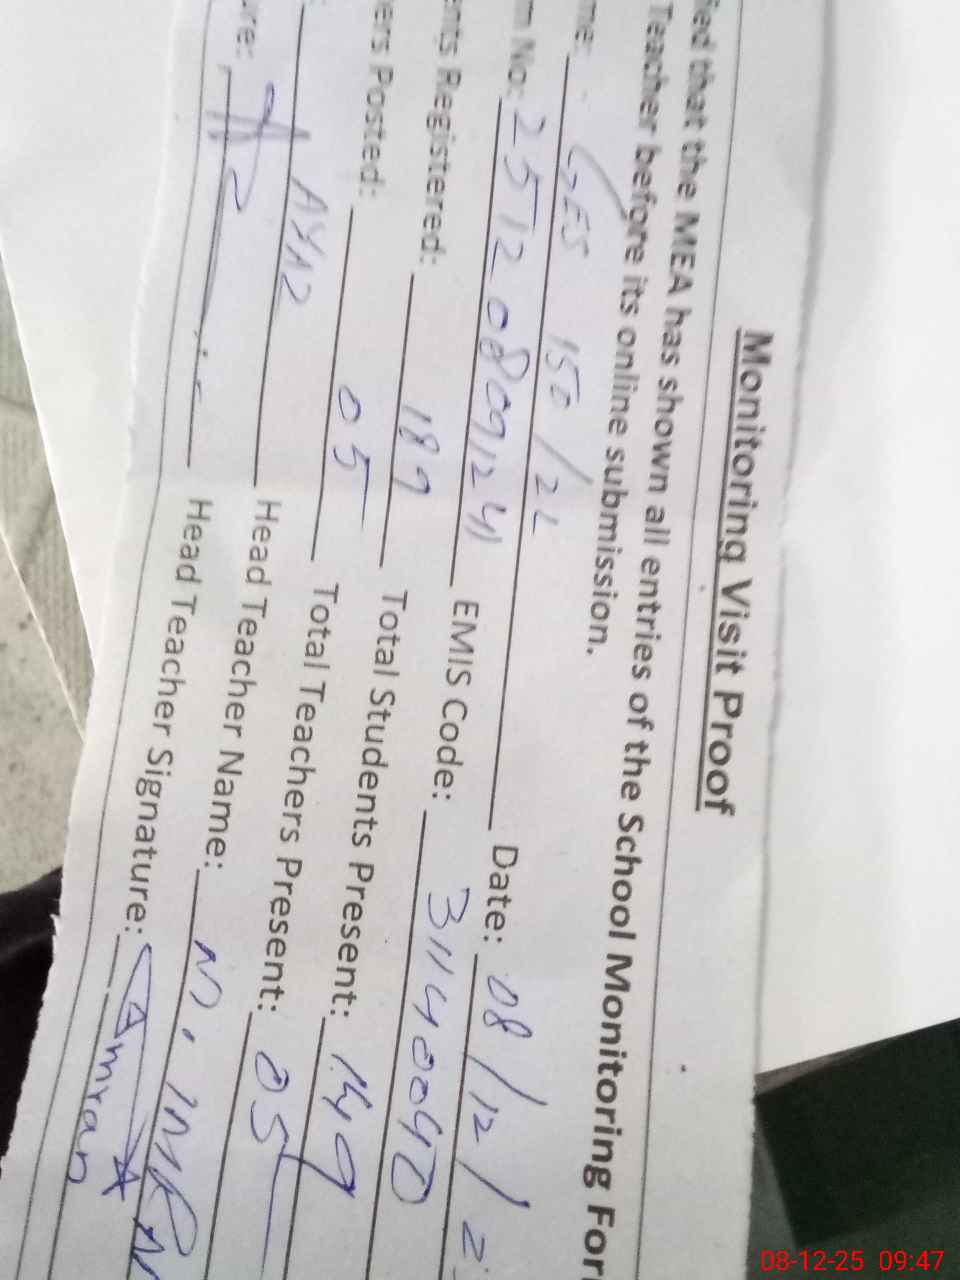 Monitoring Visit Proof
ied that the MEA has shown all entries of the School Monitoring For
Teacher before its online submission.
me: GES 150/2L Date: 08/12/2
m No: 251208091241 EMIS Code: 31140040
ents Registered: 189 Total Students Present: 149
ers Posted: 05 Total Teachers Present: 05
Head Teacher Name: M. IMRAN
ure: Head Teacher Signature: Imran
08-12-25 09:47